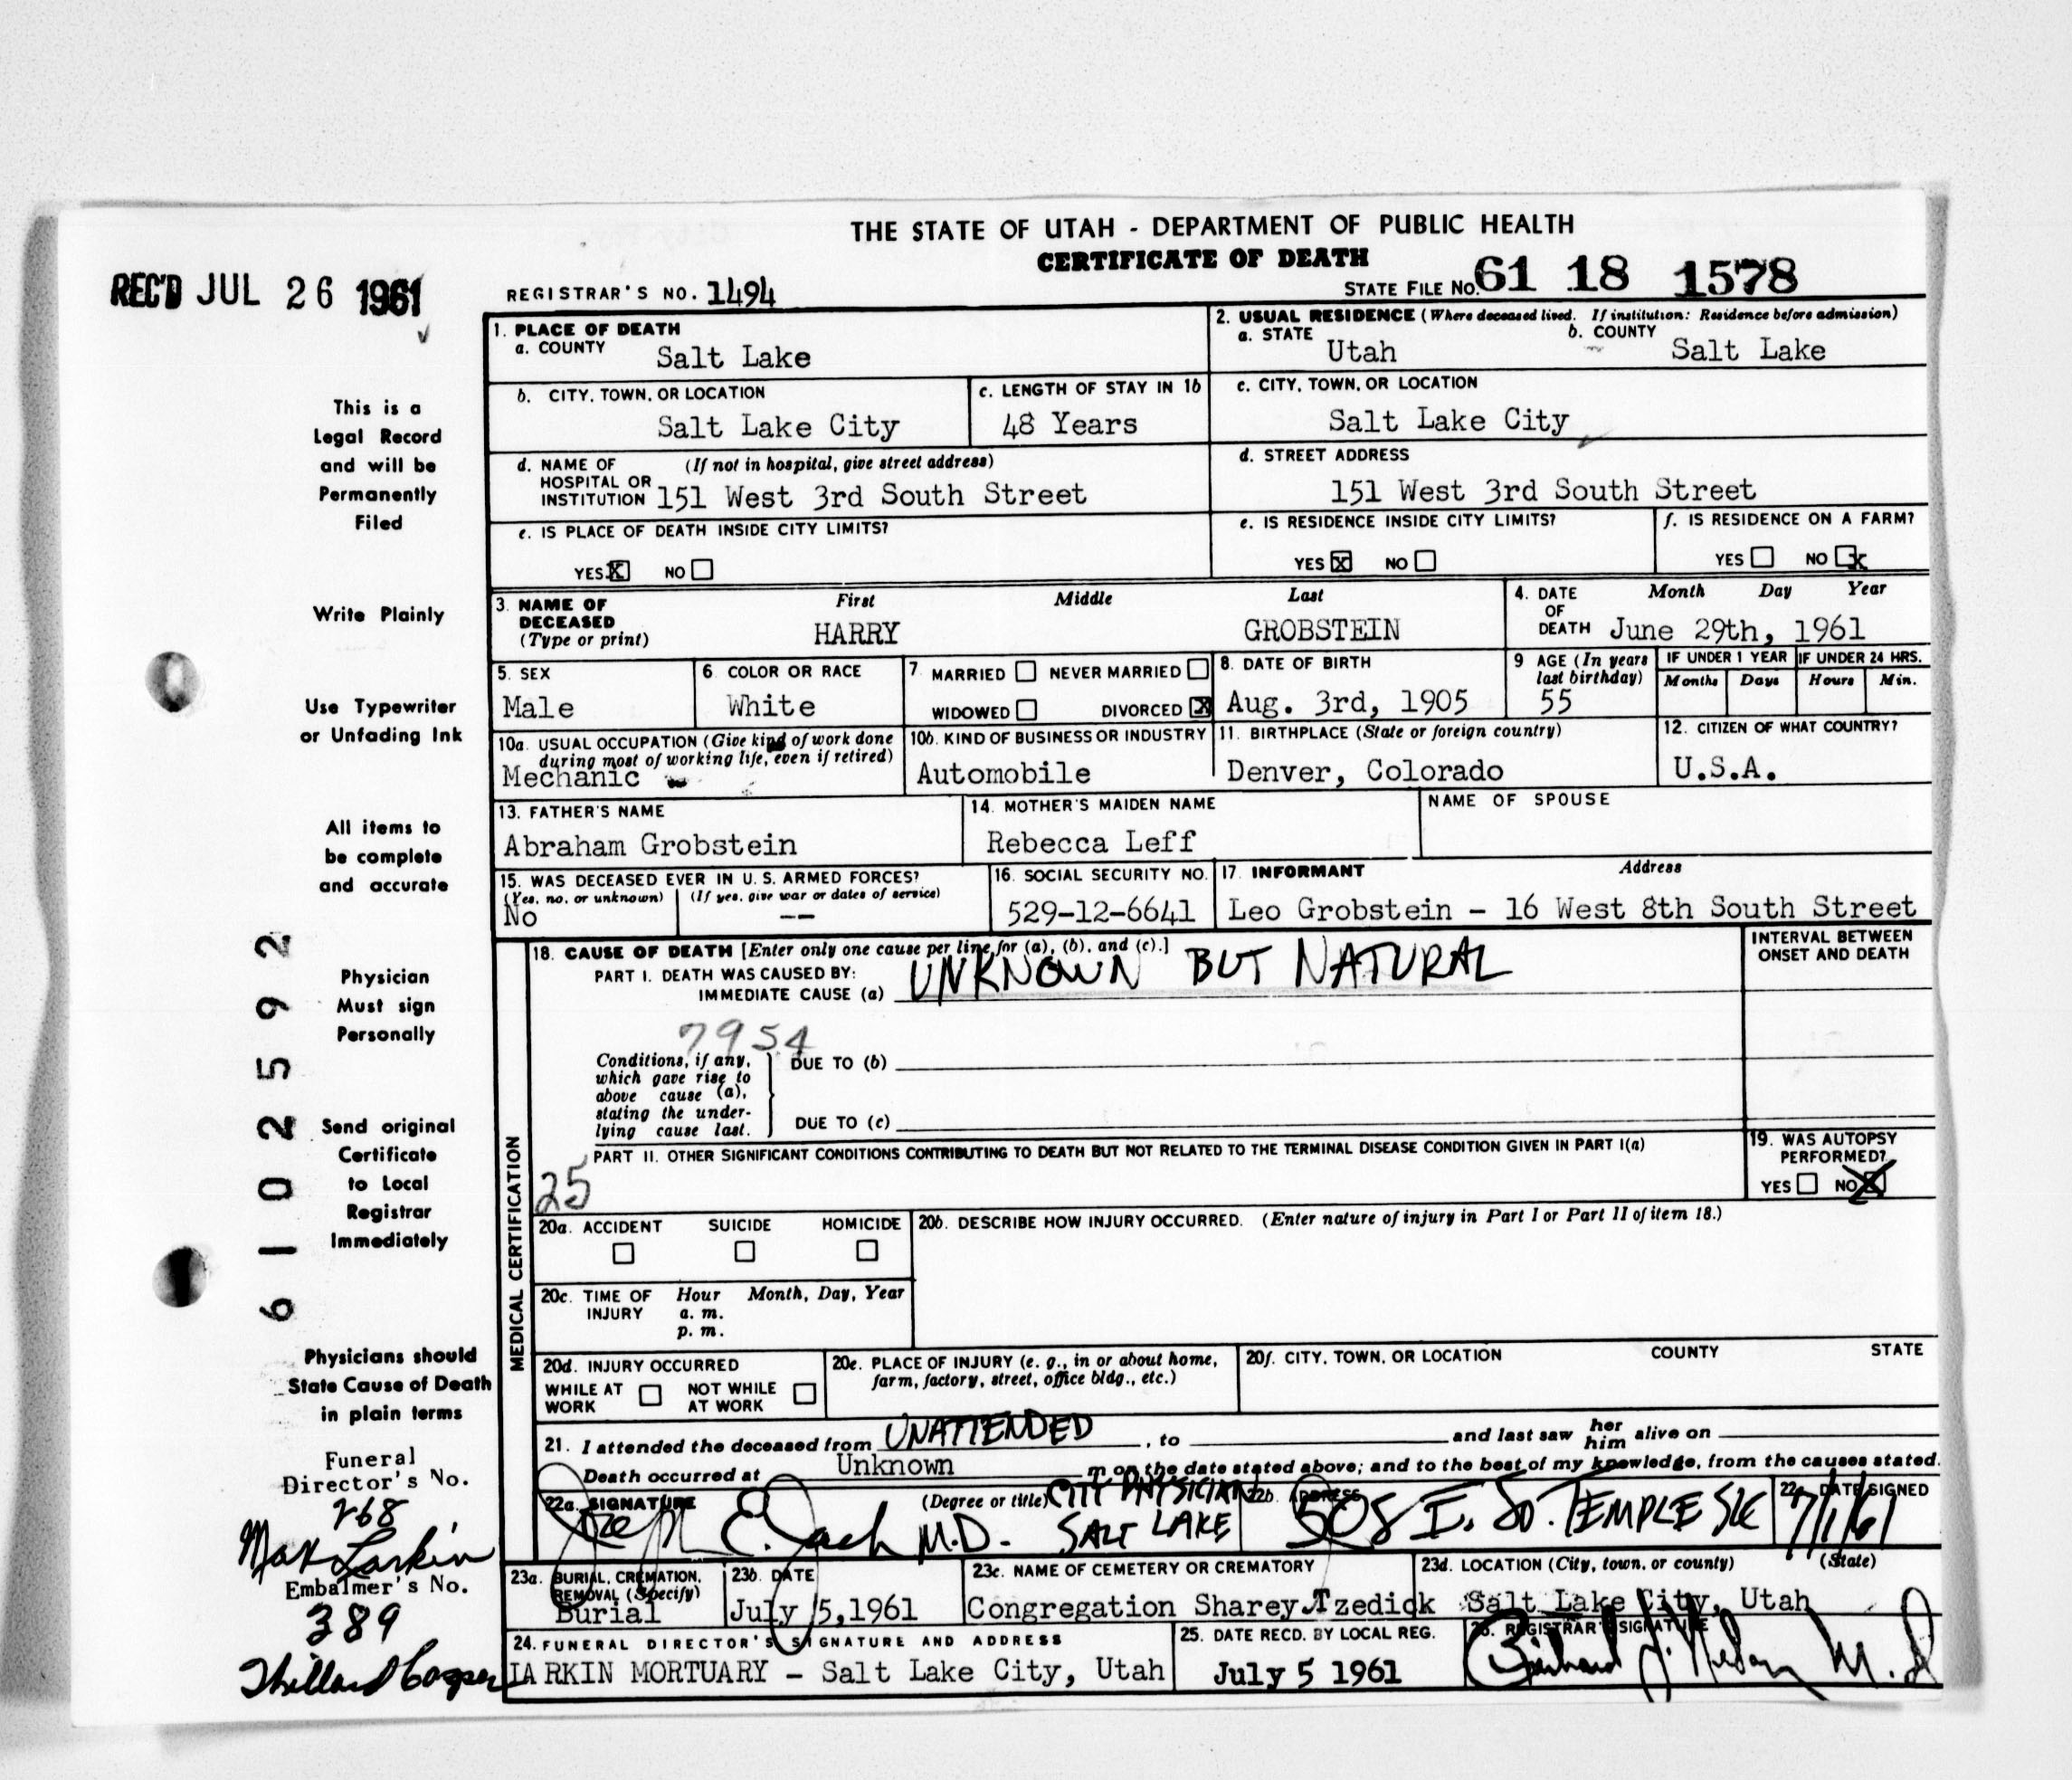 THE STATE OF UTAH - DEPARTMENT OF PUBLIC HEALTH
CERTIFICATE OF DEATH
REC'D JUL 26 1961
REGISTRAR'S NO. 1494
STATE FILE NO. 61 18 1578
This is a
Legal Record
and will be
Permanently
Filed
Write Plainly
Use Typewriter
or Unfading Ink
All items to
be complete
and accurate
Physician
Must sign
Personally
Send original
Certificate
to Local
Registrar
Immediately
Physicians should
State Cause of Death
in plain terms
Funeral
Director's No.
268
Max Larkin
Embalmer's No.
389
61025592
1. PLACE OF DEATH
a. COUNTY Salt Lake
2. USUAL RESIDENCE (Where deceased lived. If institution: Residence before admission)
a. STATE Utah b. COUNTY Salt Lake
b. CITY, TOWN, OR LOCATION Salt Lake City
c. LENGTH OF STAY IN 1b 48 Years
c. CITY, TOWN, OR LOCATION Salt Lake City
d. NAME OF HOSPITAL OR INSTITUTION (If not in hospital, give street address) 151 West 3rd South Street
d. STREET ADDRESS 151 West 3rd South Street
e. IS PLACE OF DEATH INSIDE CITY LIMITS?
YES X NO
e. IS RESIDENCE INSIDE CITY LIMITS?
YES X NO
f. IS RESIDENCE ON A FARM?
YES NO X
3. NAME OF DECEASED (Type or print) First HARRY Middle Last GROBSTEIN
4. DATE OF DEATH Month Day Year June 29th, 1961
5. SEX Male
6. COLOR OR RACE White
7. MARRIED NEVER MARRIED
WIDOWED DIVORCED X
8. DATE OF BIRTH Aug. 3rd, 1905
9 AGE (In years last birthday) 55
IF UNDER 1 YEAR Months Days
IF UNDER 24 HRS. Hours Min.
10a. USUAL OCCUPATION (Give kind of work done during most of working life, even if retired) Mechanic
10b. KIND OF BUSINESS OR INDUSTRY Automobile
11. BIRTHPLACE (State or foreign country) Denver, Colorado
12. CITIZEN OF WHAT COUNTRY? U.S.A.
13. FATHER'S NAME Abraham Grobstein
14. MOTHER'S MAIDEN NAME Rebecca Leff
NAME OF SPOUSE
15. WAS DECEASED EVER IN U. S. ARMED FORCES?
(Yes, no, or unknown) No (If yes, give war or dates of service) --
16. SOCIAL SECURITY NO. 529-12-6641
17. INFORMANT Address Leo Grobstein - 16 West 8th South Street
MEDICAL CERTIFICATION
18. CAUSE OF DEATH [Enter only one cause per line for (a), (b), and (c).]
PART I. DEATH WAS CAUSED BY:
IMMEDIATE CAUSE (a) UNKNOWN BUT NATURAL
INTERVAL BETWEEN ONSET AND DEATH
7954
Conditions, if any, which gave rise to above cause (a), stating the underlying cause last.
DUE TO (b)
DUE TO (c)
PART II. OTHER SIGNIFICANT CONDITIONS CONTRIBUTING TO DEATH BUT NOT RELATED TO THE TERMINAL DISEASE CONDITION GIVEN IN PART I(a)
25
19. WAS AUTOPSY PERFORMED?
YES NO X
20a. ACCIDENT SUICIDE HOMICIDE
20b. DESCRIBE HOW INJURY OCCURRED. (Enter nature of injury in Part I or Part II of item 18.)
20c. TIME OF INJURY Hour a. m. p. m. Month, Day, Year
20d. INJURY OCCURRED
WHILE AT WORK NOT WHILE AT WORK
20e. PLACE OF INJURY (e. g., in or about home, farm, factory, street, office bldg., etc.)
20f. CITY, TOWN, OR LOCATION COUNTY STATE
21. I attended the deceased from UNATTENDED, to and last saw her him alive on
Death occurred at Unknown m on the date stated above; and to the best of my knowledge, from the causes stated.
22a. SIGNATURE (Degree or title) M.D. CITY PHYSICIAN SALT LAKE
22b. ADDRESS 508 E. SO. TEMPLE SLC
22c. DATE SIGNED 7/1/61
23a. BURIAL, CREMATION, REMOVAL (Specify) Burial
23b. DATE July 5, 1961
23c. NAME OF CEMETERY OR CREMATORY Congregation Sharey Tzedick
23d. LOCATION (City, town, or county) (State) Salt Lake City, Utah
24. FUNERAL DIRECTOR'S SIGNATURE AND ADDRESS
LARKIN MORTUARY - Salt Lake City, Utah
25. DATE RECD. BY LOCAL REG. July 5 1961
26. REGISTRAR'S SIGNATURE